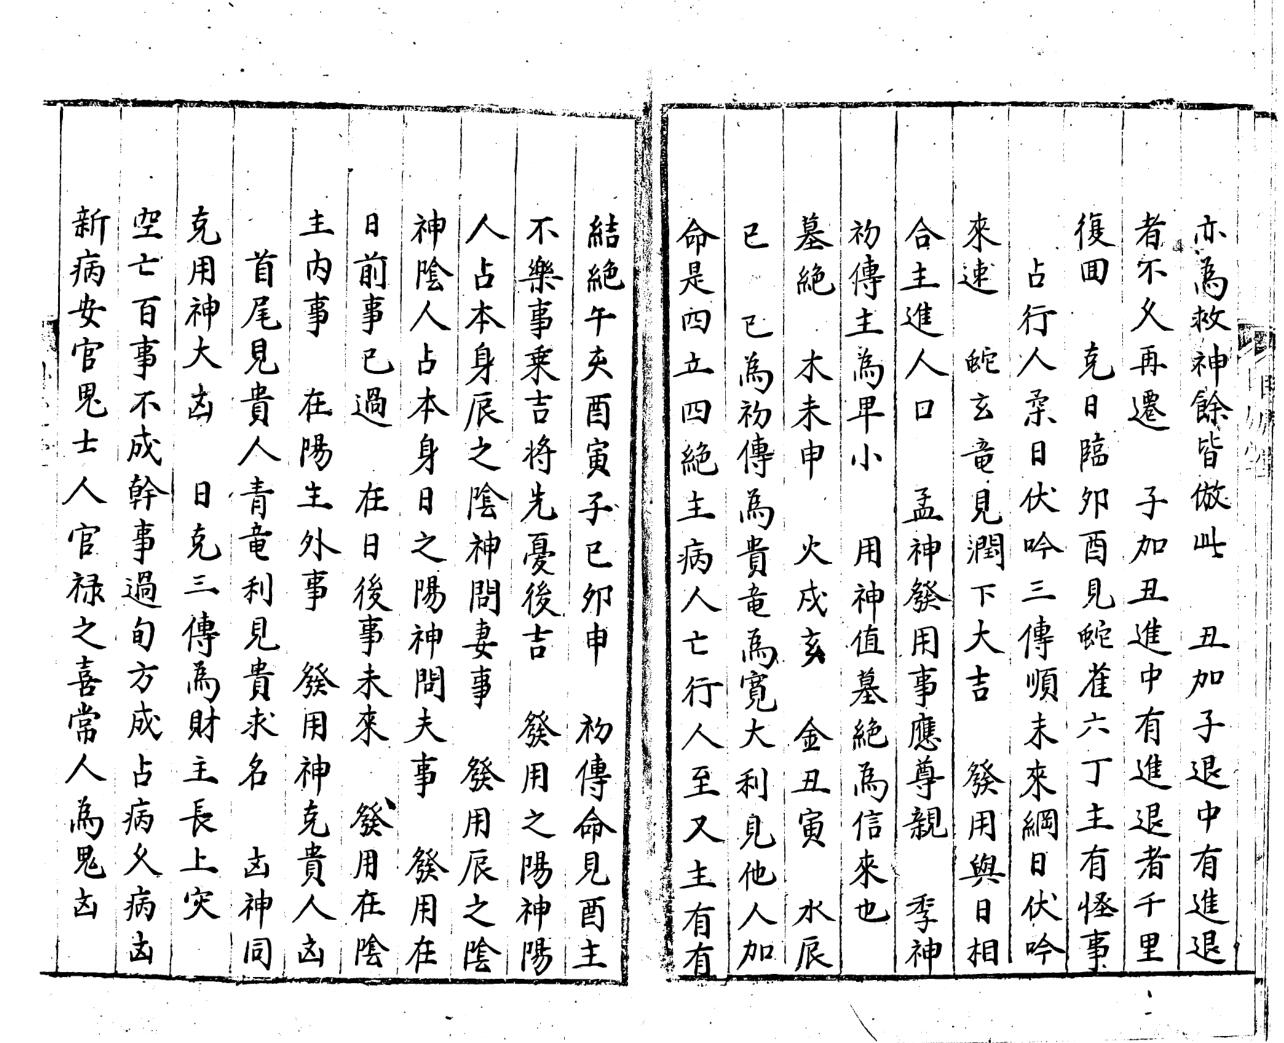 亦為救神餘皆倣此　丑加子退中有進退
者不久再遷　子加丑進中有進退者千里
復囬　克日臨夘酉見蛇雀六丁主有怪事
占行人柔日伏吟三傳順未來綱日伏吟
來速　蛇玄竜見潤下大吉　發用與日相
合主進人口　孟神發用事應尊親　季神
初傳主為早小　用神值墓絕為信來也
墓絕　木未申　火戍亥　金丑寅　水辰
已　已為初傳為貴竜為寛大利見他人加
命是四立四絕主病人亡行人至又主有有
結絕午亥酉寅子巳夘申　初傳命見酉主
不樂事乗吉将先憂後吉　發用之陽神陽
人占本身辰之陰神問妻事　發用辰之陰
神陰人占本身日之陽神問夫事　發用在
日前事已過　在日後事未來　發用在陰
主内事　在陽主外事　發用神克貴人凶
首尾見貴人青竜利見貴求名　凶神同
克用神大凶　日克三傳為財主長上灾
空亡百事不成幹事過旬方成占病久病凶
新病安官鬼士人官禄之喜常人為鬼凶